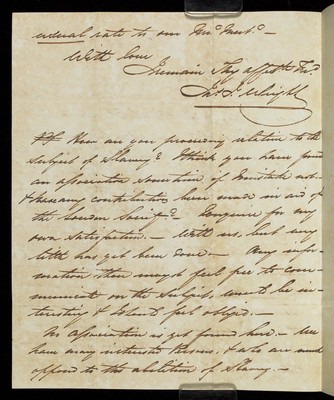 usual rate to our Mo. Meet.g —
With love
I remain Thy affect. Fr.d
Jno. J. Wright
P.S. How are you proceeding relative to the
subject of Slavery? I think you have formed
an association sometime if I mistake not —
& have any contributions been made in aid of
the London Society? I enquire for my
own satisfaction. — With us, but very
little has yet been done. — Any infor-
mation thou mayst feel free to com-
municate on the subject, would be in-
teresting & I should feel obliged. —
No association is yet formed here. — We
have many interested Persons, & also are much
opposed to the abolition of Slavery. —